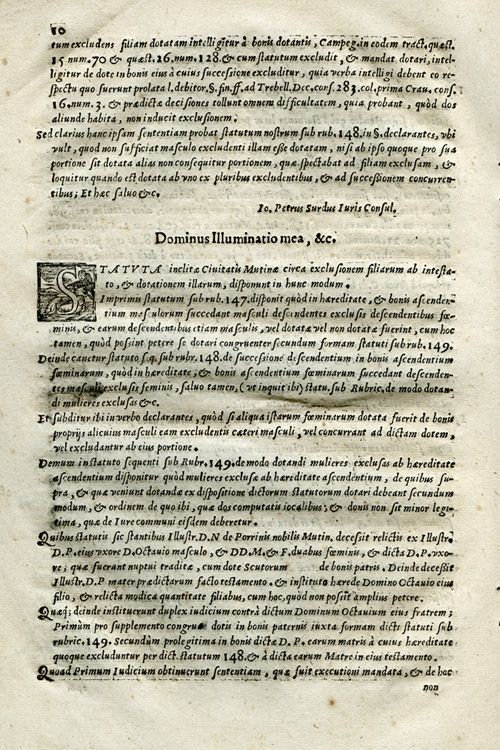 10
tum excludens filiam dotatam intelligitur à bonis dotantis, Campeg. in eodem tract. quæst.
15. num. 70 & quæst. 16. num. 128. & cum statutum excludit, & mandat dotari, intel-
ligitur de dote in bonis eius à cuius successione excluditur, quia verba intelligi debent co re-
spectu quo fuerunt prolata l. debitor. §. fin. ff. ad Trebell. Dec. cons. 283. col. prima Crau. cons.
16. num. 3. & prædictæ decisiones tollunt omnem difficultatem, quia probant, quòd dos
aliunde habita, non inducit exclusionem.
Sed clarius hanc ipsam sententiam probat statutum nostrum sub rub. 148. in §. declarantes, vbi
vult, quod non sufficiat masculo excludenti illam esse dotatam, nisi ab ipso quoque pro sua
portione sit dotata alias non consequitur portionem, quæ spectabat ad filiam exclusam, &
loquitur quando est dotata ab vno ex pluribus excludentibus, & ad successionem concurren-
tibus; Et hæc saluo &c.
Io. Petrus Surdus Iuris Consul.
Dominus Illuminatio mea, &c.
STATVTA inclitæ Ciuitatis Mutinæ circa exclusionem filiarum ab intesta-
to, & dotationem illarum, disponunt in hunc modum.
Imprimis statutum sub rub. 147. disponit quòd in hæreditate, & bonis ascenden-
tium masculorum succedant masculi descendentes exclusis descendentibus fœ-
minis, & earum descendentibus etiam masculis, vel dotatæ vel non dotatæ fuerint, cum hoc
tamen, quòd possint petere se dotari congruenter secundum formam statuti sub rub. 149.
Deinde cauetur statuto s.q. sub rubr. 148. de successione descendentium in bonis ascendentium
fœminarum, quòd in hæreditate; & bonis ascendentium fœminarum succedant descenden-
tes masculi exclusis feminis, saluo tamen, (vt inquit ibi) statu. sub Rubric. de modo dotan-
di mulieres exclusas &c.
Et subditur ibi in verbo declarantes, quòd si aliqua istarum fœminarum dotata fuerit de bonis
proprijs alicuius masculi eam excludentis cæteri masculi, vel concurrant ad dictam dotem,
vel excludantur ab eius portione.
Demum in statuto sequenti sub Rubr. 149. de modo dotandi mulieres exclusas ab hæreditate
ascendentium disponitur quòd mulieres exclusæ ab hæreditate ascendentium, de quibus su-
pra, & quæ veniunt dotandæ ex dispositione dictorum statutorum dotari debeant secundum
modum, & ordinem de quo ibi, quæ dos computatis iocalibus; & donis non sit minor legi-
tima, quæ de Iure communi eisdem deberetur.
Quibus statutis sic stantibus Illustr. D. N de Porrinis nobilis Mutin. decessit relictis ex Illustr.
D. P. eius vxore D. Octauio masculo, & DD. M. & F. duabus fœminis, & dicta D. P. vxo-
re; quæ fuerant nuptui traditæ, cum dote Scutorum de bonis patris. Deinde decessit
Illustr. D. P mater prædictarum facto testamento. & instituto hærede Domino Octauio eius
filio, & relicta modica quantitate filiabus, cum hoc, quòd non possit amplius petere.
Quæq; deinde instituerunt duplex iudicium contrà dictum Dominum Octauium eius fratrem;
Primùm pro supplemento congruæ dotis in bonis paternis iuxta formam dicti statuti sub
rubric. 149. Secundùm pro legitima in bonis dictæ D. P. earum matris à cuius hæreditate
quoque excluduntur per dict. statutum 148. & à dicta earum Matre in eius testamento.
Quoad Primum Iudicium obtinuerunt sententiam, quæ fuit executioni mandata, & de hoc
non